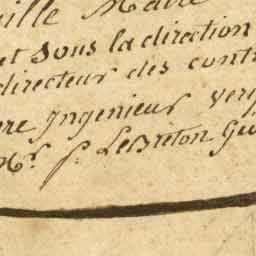 ille Mave
et sous la direction
directeur des contr
re Ingenieur veri
Mr. p. LeBreton Gé